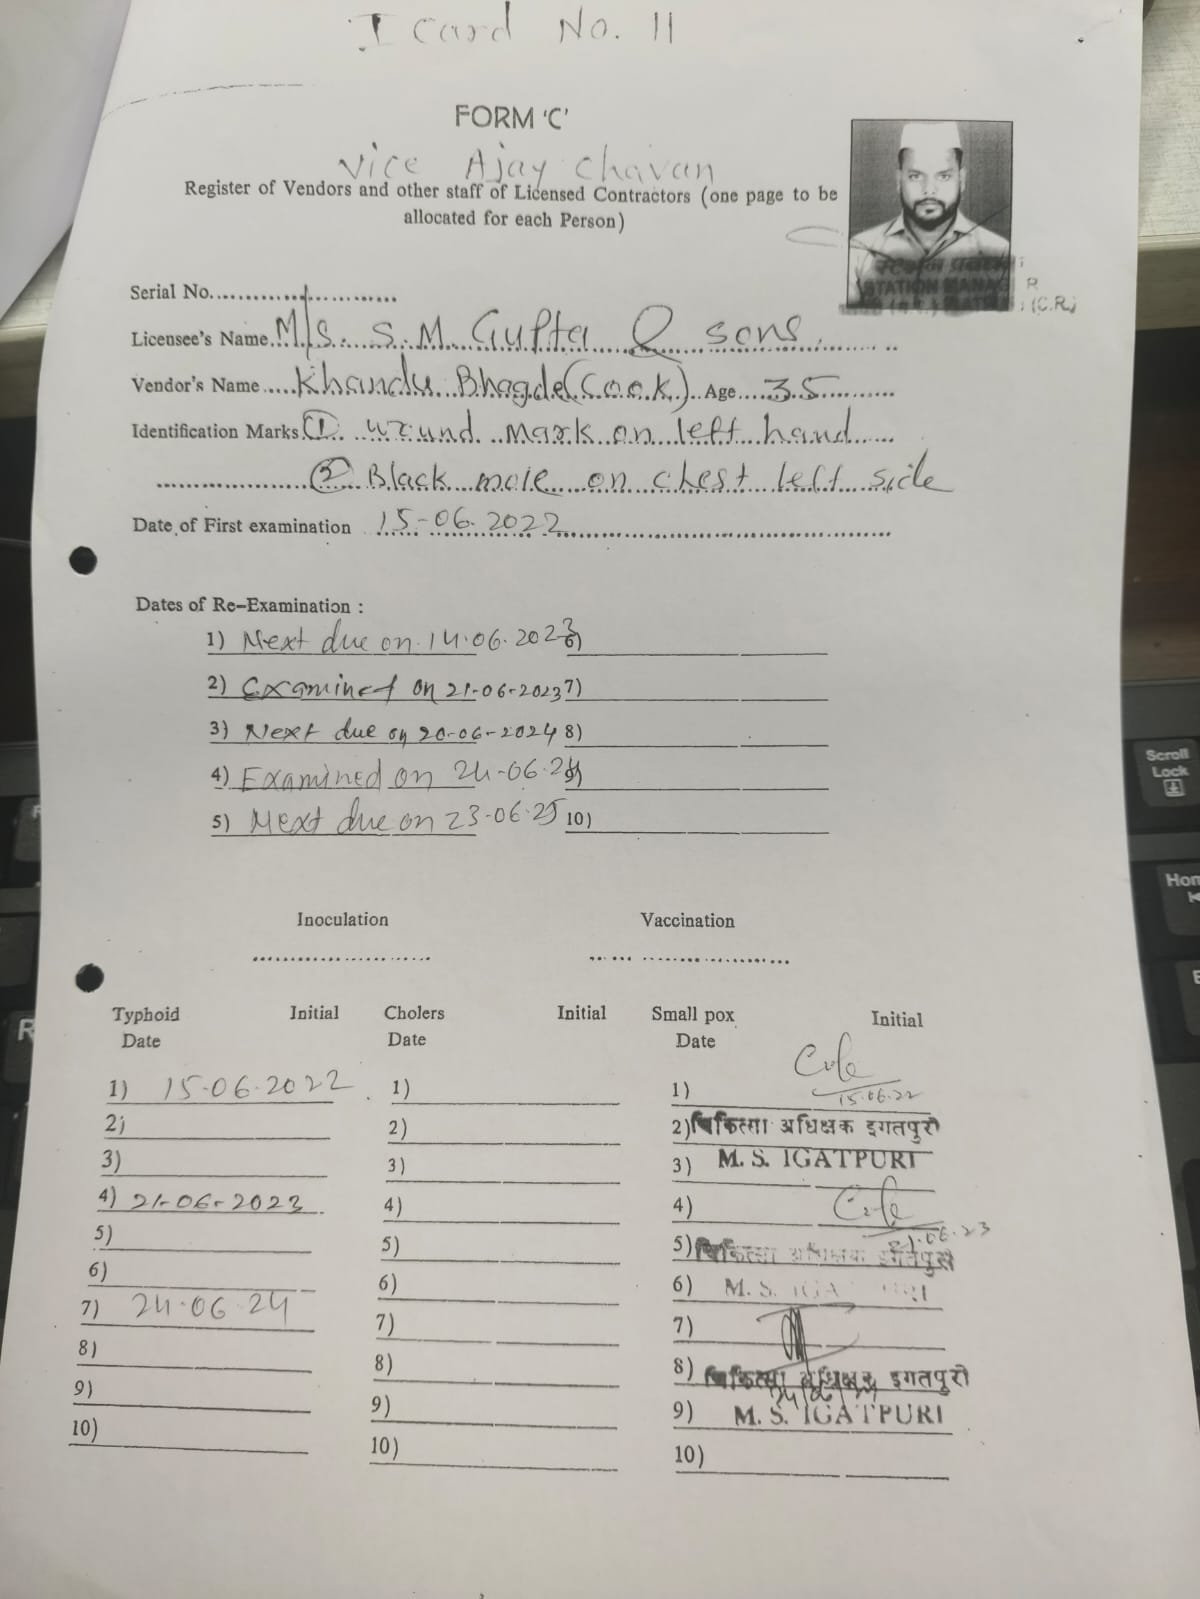 I Card No. 11
FORM 'C'
Vice Ajay Chavan
Register of Vendors and other staff of Licensed Contractors (one page to be
allocated for each Person)
STATION MANAG R
(C.R.)
Serial No.
Licensee's Name M/s. S.M. Gupta & sons
Vendor's Name Khandu Bhagde (Cook) Age 35
Identification Marks ① wound Mark on left hand
② Black mole on chest left side
Date of First examination 15-06-2022
Dates of Re-Examination :
1) Next due on 14.06.2023 6)
2) Examined on 21-06-2023 7)
3) Next due on 20-06-2024 8)
4) Examined on 24-06-24 9)
5) Next due on 23-06-25 10)
Inoculation Vaccination
Typhoid Initial Cholers Initial Small pox Initial
Date Date Date
1) 15-06-2022 1) 1) 15.06.22
2) 2) 2) चिकित्सा अधिक्षक इगतपुरी
3) 3) 3) M. S. IGATPURI
4) 21-06-2023 4) 4)
5) 5) 5) चिकित्सा अधिक्षक इगतपुरी
6) 6) 6) M. S.
7) 24.06.24 7) 7)
8) 8) 8) चिकित्सा अधिक्षक इगतपुरी
9) 9) 9) M. S. IGATPURI
10) 10) 10)
Scroll
Lock